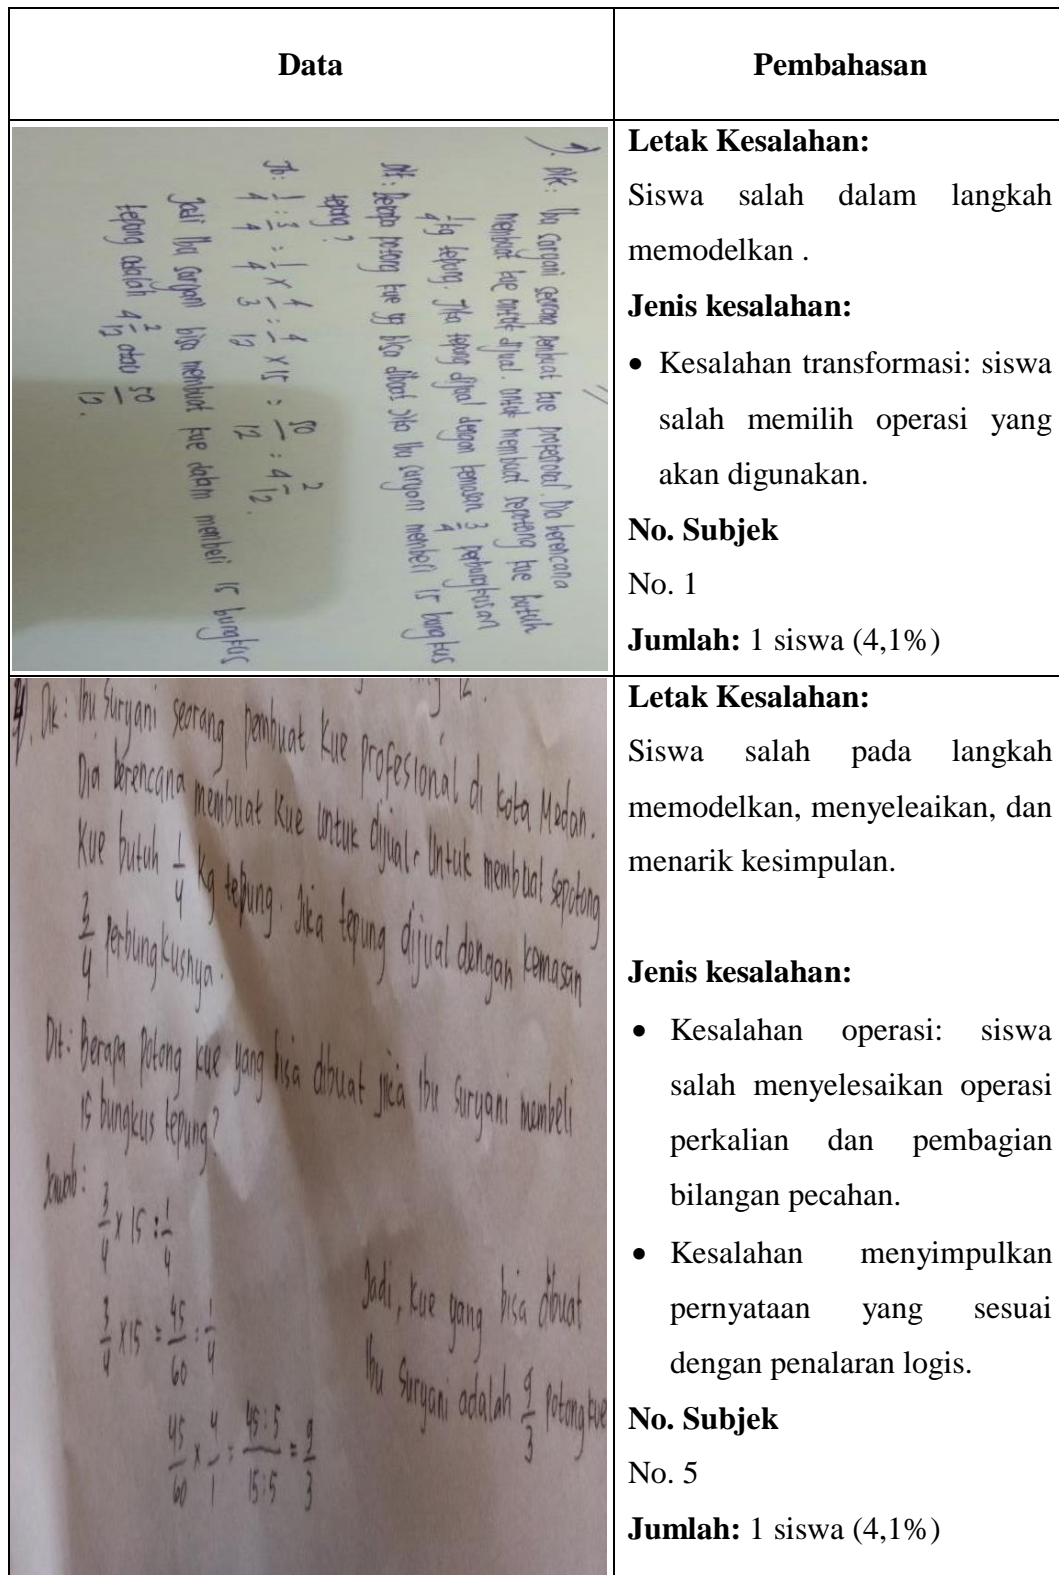 Data
Pembahasan
1). Dik: Ibu Suryani seorang pembuat kue profesional. Dia berencana
membuat kue untuk dijual. untuk membuat sepotong kue butuh
1/4 kg tepung. Jika tepung dijual dengan kemasan 3/4 perbungkusan
Dit: Berapa potong kue yg bisa dibuat jika Ibu suryani membeli 15 bungkus
tepung?
Jb: 1/4 : 3/4 = 1/4 x 4/3 = 4/12 x 15 = 50/12 = 4 2/12.
Jadi Ibu Suryani bisa membuat kue dalam membeli 15 bungkus
tepung adalah 4 2/12 atau 50/12.
Letak Kesalahan:
Siswa salah dalam langkah
memodelkan .
Jenis kesalahan:
• Kesalahan transformasi: siswa
salah memilih operasi yang
akan digunakan.
No. Subjek
No. 1
Jumlah: 1 siswa (4,1%)
12.
Dik: Ibu Suryani seorang pembuat kue profesional di kota Medan.
Dia berencana membuat kue untuk dijual. Untuk membuat sepotong
kue butuh 1/4 kg tepung. Jika tepung dijual dengan kemasan
3/4 perbungkusnya.
Dit: Berapa Potong kue yang bisa dibuat jika Ibu Suryani membeli
15 bungkus tepung?
Jawab:
3/4 x 15 : 1/4
3/4 x 15 = 45/60 : 1/4
45/60 x 4/1 = 45:5/15:5 = 9/3
Jadi, kue yang bisa dibuat
Ibu Suryani adalah 9/3 potong kue
Letak Kesalahan:
Siswa salah pada langkah
memodelkan, menyeleaikan, dan
menarik kesimpulan.
Jenis kesalahan:
• Kesalahan operasi: siswa
salah menyelesaikan operasi
perkalian dan pembagian
bilangan pecahan.
• Kesalahan menyimpulkan
pernyataan yang sesuai
dengan penalaran logis.
No. Subjek
No. 5
Jumlah: 1 siswa (4,1%)